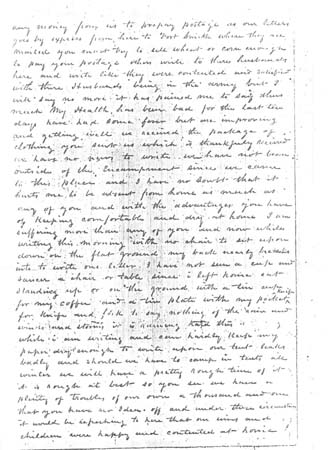 any money from us to prepay postage as our letters
goes by express from here to Fort Smith where they are
mailed you must try to sell wheat or corn enough
to pay your postage others write to there husbands
here and write like they were contented and satisfied
with there Husbands being in the army but I
will say no more it has pained me to say this
much My health has been bad for the last ten
days have had some fever but am improving
and getting well we received the package of
clothing you sent us which is thankfully received
we have no news to write we have not been
outside of the Encampment since we came
to this place and I have no doubt that it
hurts me to be absent from home as much as
any of you and with the advantages you have
of Keeping comfortable and dry at home I am
suffering more than any of you and now while
writing this morning with no chair to sit upon
down on the flat ground my back nearly breaks
into to write one letter I have not seen a cup and
saucer a chair or table since I left home eat
standing up or on the ground with a tin cup
for my coffee and a tin plate with my pocket knife
for Knife and fork to say nothing of the rain and
winds and storms it is raining
while I am writing and can hardly Keep my
paper dry enough to write upon our tent leaks
badly and should we have to camp in tents all
winter we will have a pretty rough time of it
it is rough at best so you see we have a
plenty of troubles of our own a thousand and one
that you have no Idea off and under these circumstances
it would be refreshing to hear that our wives and
children were happy and contented at home